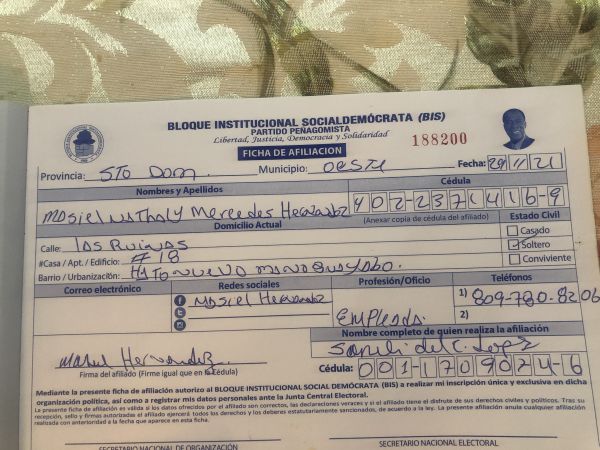 BLOQUE INSTITUCIONAL SOCIALDEMÓCRATA (BIS)
PARTIDO PEÑAGOMISTA
Libertad, Justicia, Democracia y Solidaridad
188200
FICHA DE AFILIACION
Provincia: STO Dom Municipio: OesTe Fecha: 29 11 21
Nombres y Apellidos Cédula
Mercedes Hernandez 402-2371416-9
(Anexar copia de cédula del afiliado)
Domicilio Actual Estado Civil
Calle: las Ruinas Casado
#Casa / Apt. / Edificio: # 18 Soltero
Barrio / Urbanización: HATO nuevo manoguayabo. Conviviente
Correo electrónico Redes sociales Profesión/Oficio Teléfonos
Masiel Hernandez 1) 809-780-8206
Empleada. 2)
Nombre completo de quien realiza la afiliación
del C. Lopez
Hernandez
Firma del afiliado (Firme igual que en la Cédula) Cédula: 001-1709024-6
Mediante la presente ficha de afiliación autorizo al BLOQUE INSTITUCIONAL SOCIAL DEMÓCRATA (BIS) a realizar mi inscripción única y exclusiva en dicha
organización política, así como a registrar mis datos personales ante la Junta Central Electoral.
La presente ficha de afiliación es válida si los datos ofrecidos por el afiliado son correctos, las declaraciones veraces y si el afiliado tiene el disfrute de sus derechos civiles y políticos. Tras su
recepción, sello y firmas autorizadas el afiliado ejercerá todos los derechos y los deberes estatutariamente sancionados, de acuerdo a la ley. La presente afiliación anula cualquier afiliación
realizada con anterioridad a la fecha que aparece en esta ficha.
SECRETARIO NACIONAL DE ORGANIZACIÓN SECRETARIO NACIONAL ELECTORAL